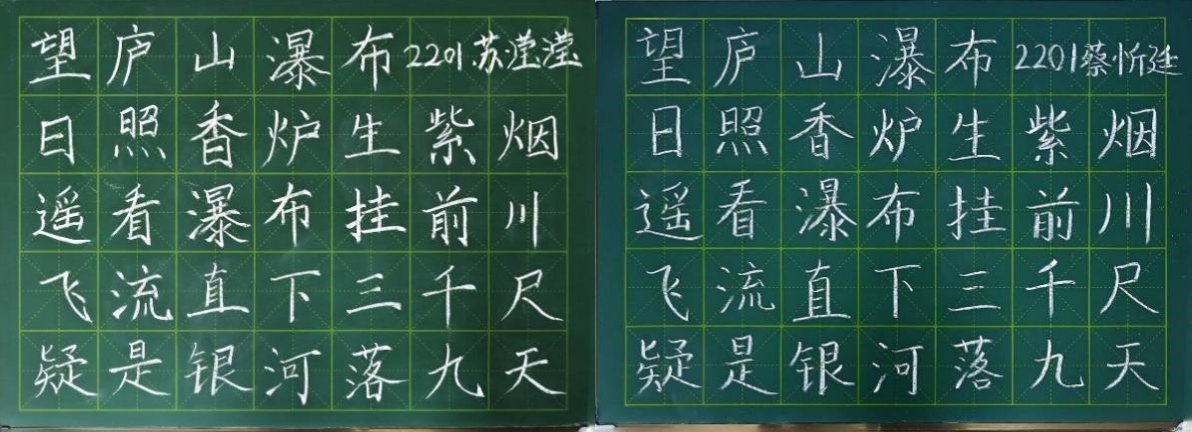 望庐山瀑布2201苏滢滢
日照香炉生紫烟
遥看瀑布挂前川
飞流直下三千尺
疑是银河落九天
望庐山瀑布2201蔡忻廷
日照香炉生紫烟
遥看瀑布挂前川
飞流直下三千尺
疑是银河落九天